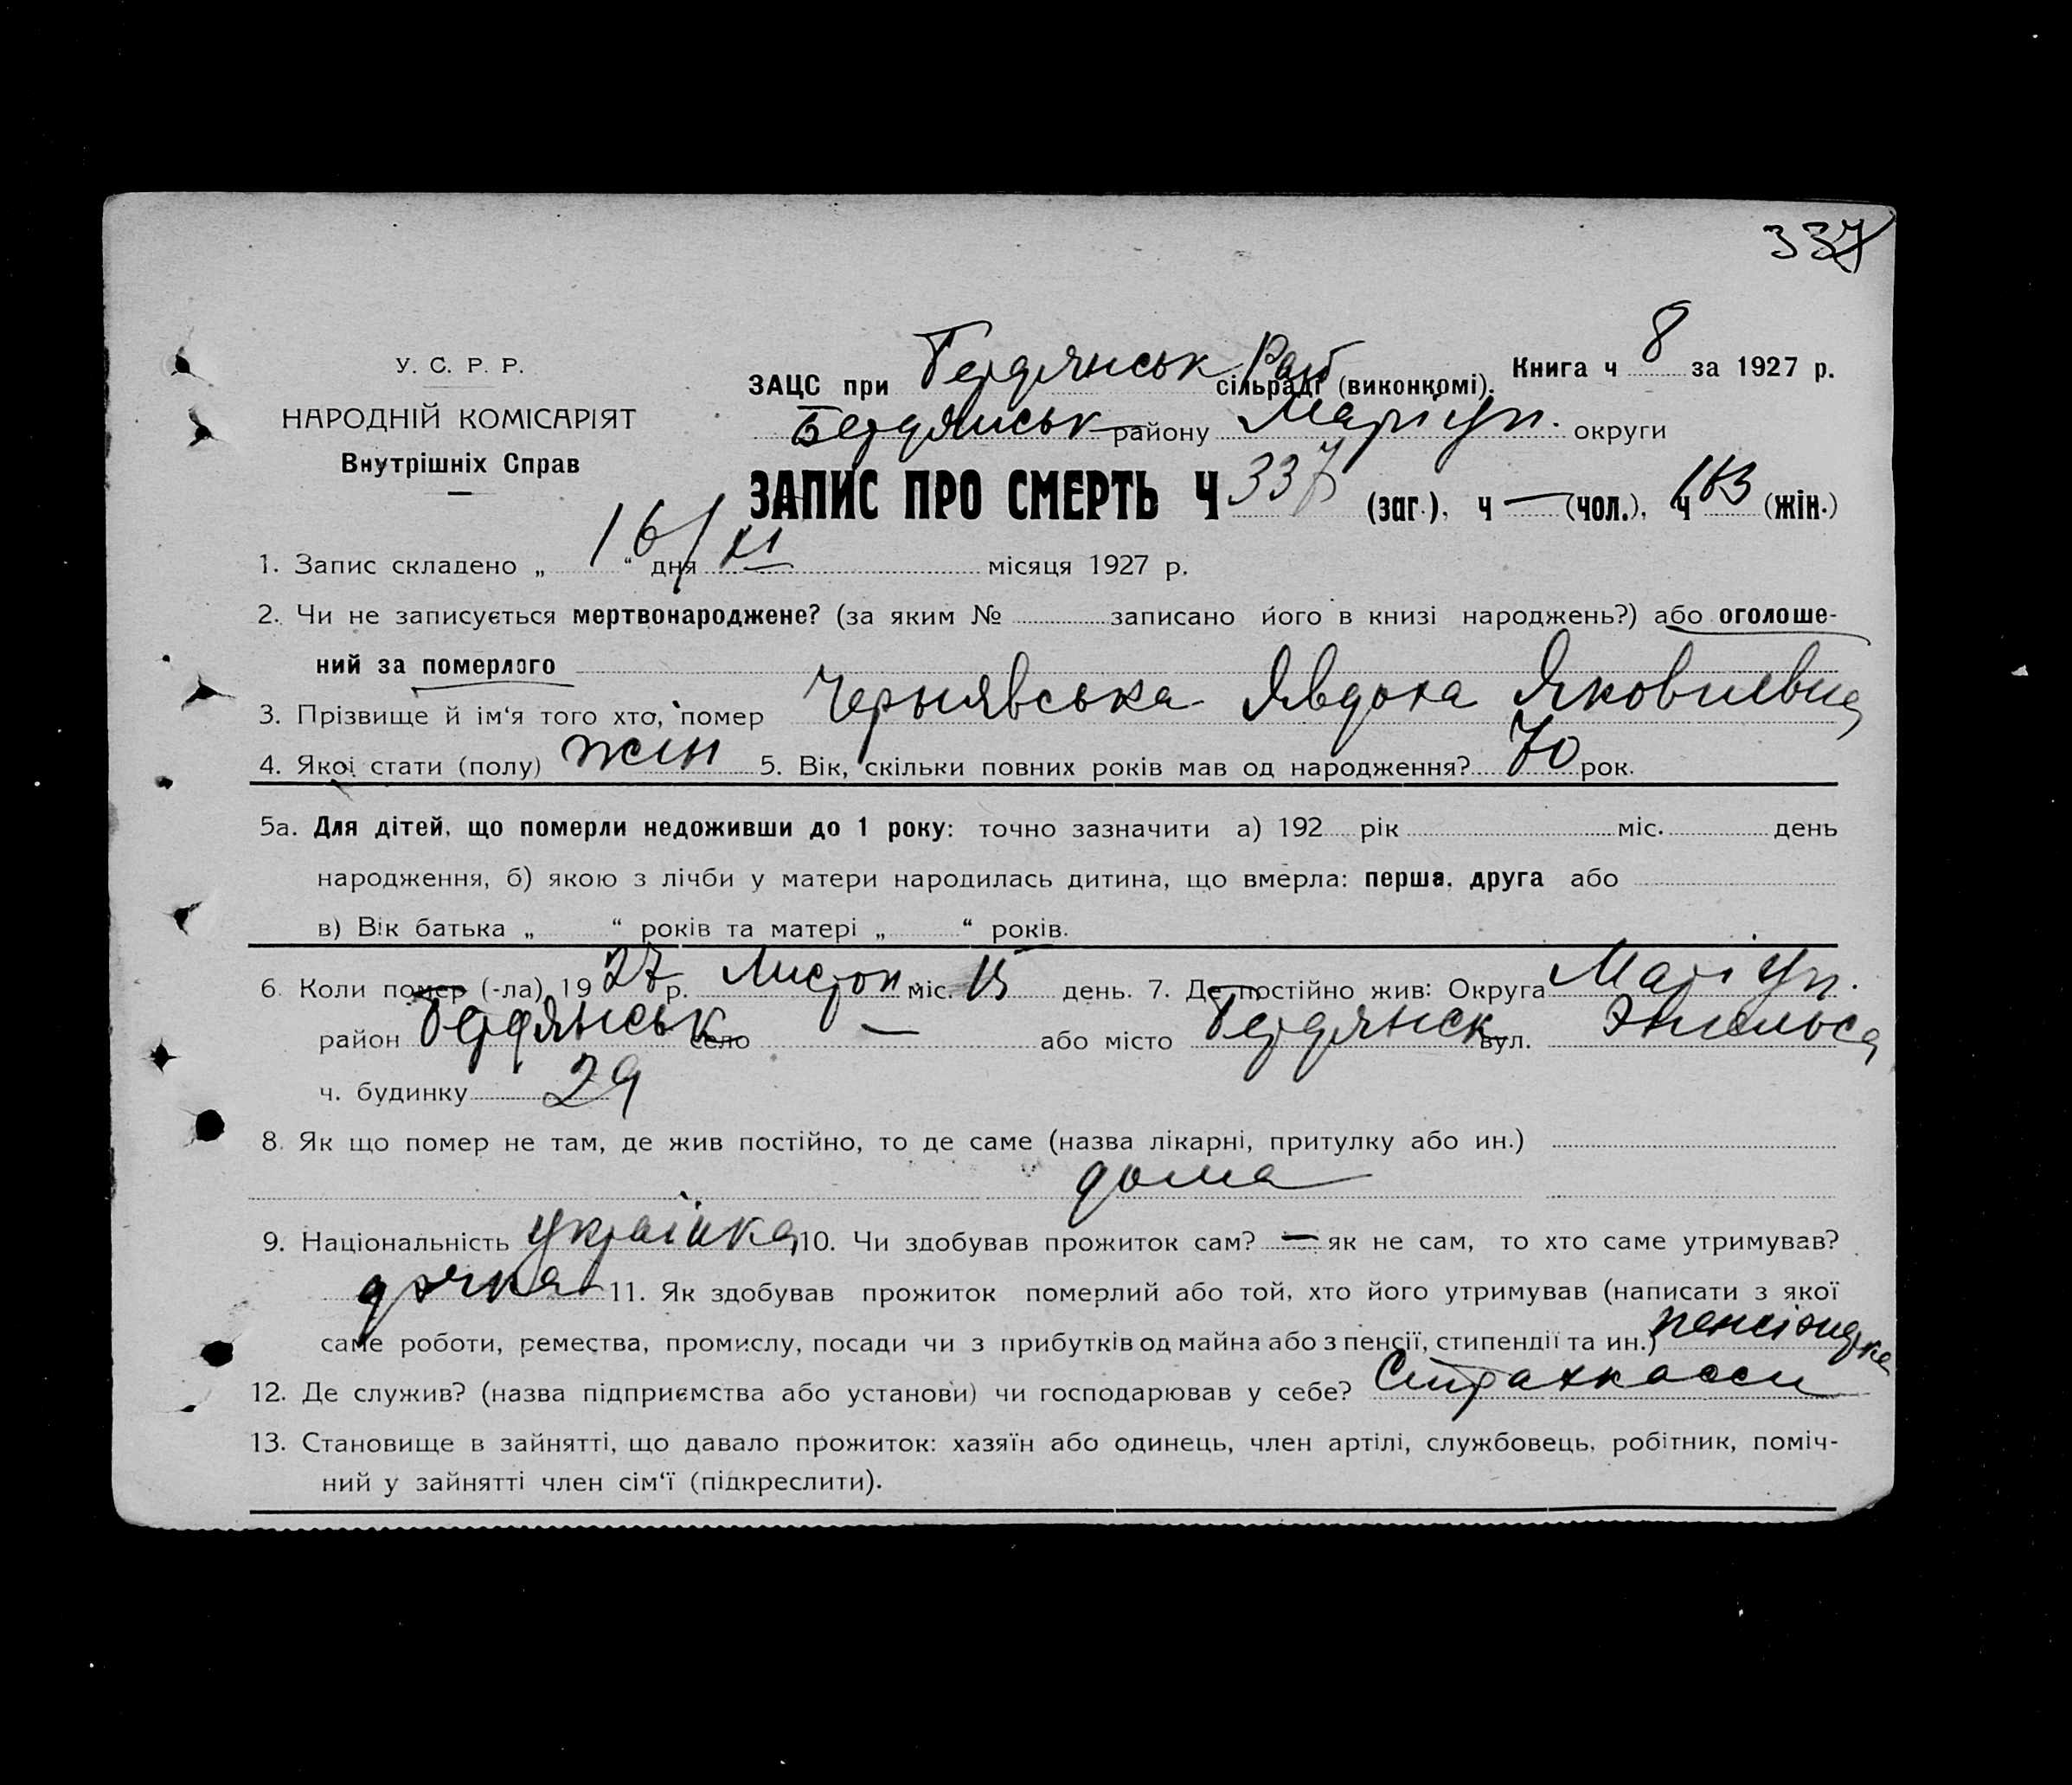 337
У. С. Р. Р.
НАРОДНІЙ КОМІСАРІЯТ
Внутрішніх Справ
ЗАЦС при Бердянськ Рай сільраді (виконкомі). Книга ч 8 за 1927 р.
Бердянськ району Маріуп. округи
ЗАПИС ПРО СМЕРТЬ Ч 337 (заг.), ч — (чол.), ч 163 (жін.)
1. Запис складено „ 16 “ дня / XI місяця 1927 р.
2. Чи не записується мертвонароджене? (за яким № записано його в книзі народжень?) або оголоше-
ний за померлого
3. Прізвище й ім‘я того хто, помер Чернявська Явдоха Яковлевна
4. Якої стати (полу) жін 5. Вік, скільки повних років мав од народження? 70 рок.
5а. Для дітей, що померли недоживши до 1 року: точно зазначити а) 192 рік міс. день
народження, б) якою з лічби у матери народилась дитина, що вмерла: перша, друга або
в) Вік батька „ “ років та матері „ “ років.
6. Коли помер (-ла) 1927 р. Листоп міс. 15 день. 7. Де постійно жив: Округа Маріуп.
район Бердянськ село — або місто Бердянськ вул. Энгельса
ч. будинку 29
8. Як що помер не там, де жив постійно, то де саме (назва лікарні, притулку або ин.)
дома
9. Національність українка 10. Чи здобував прожиток сам? — як не сам, то хто саме утримував?
дочка 11. Як здобував прожиток померлий або той, хто його утримував (написати з якої
саме роботи, ремества, промислу, посади чи з прибутків од майна або з пенсії, стипендії та ин.) пенсіонерка
12. Де служив? (назва підприємства або установи) чи господарював у себе? Страхкасси
13. Становище в зайнятті, що давало прожиток: хазяїн або одинець, член артілі, службовець, робітник, поміч-
ний у зайнятті член сім‘ї (підкреслити).